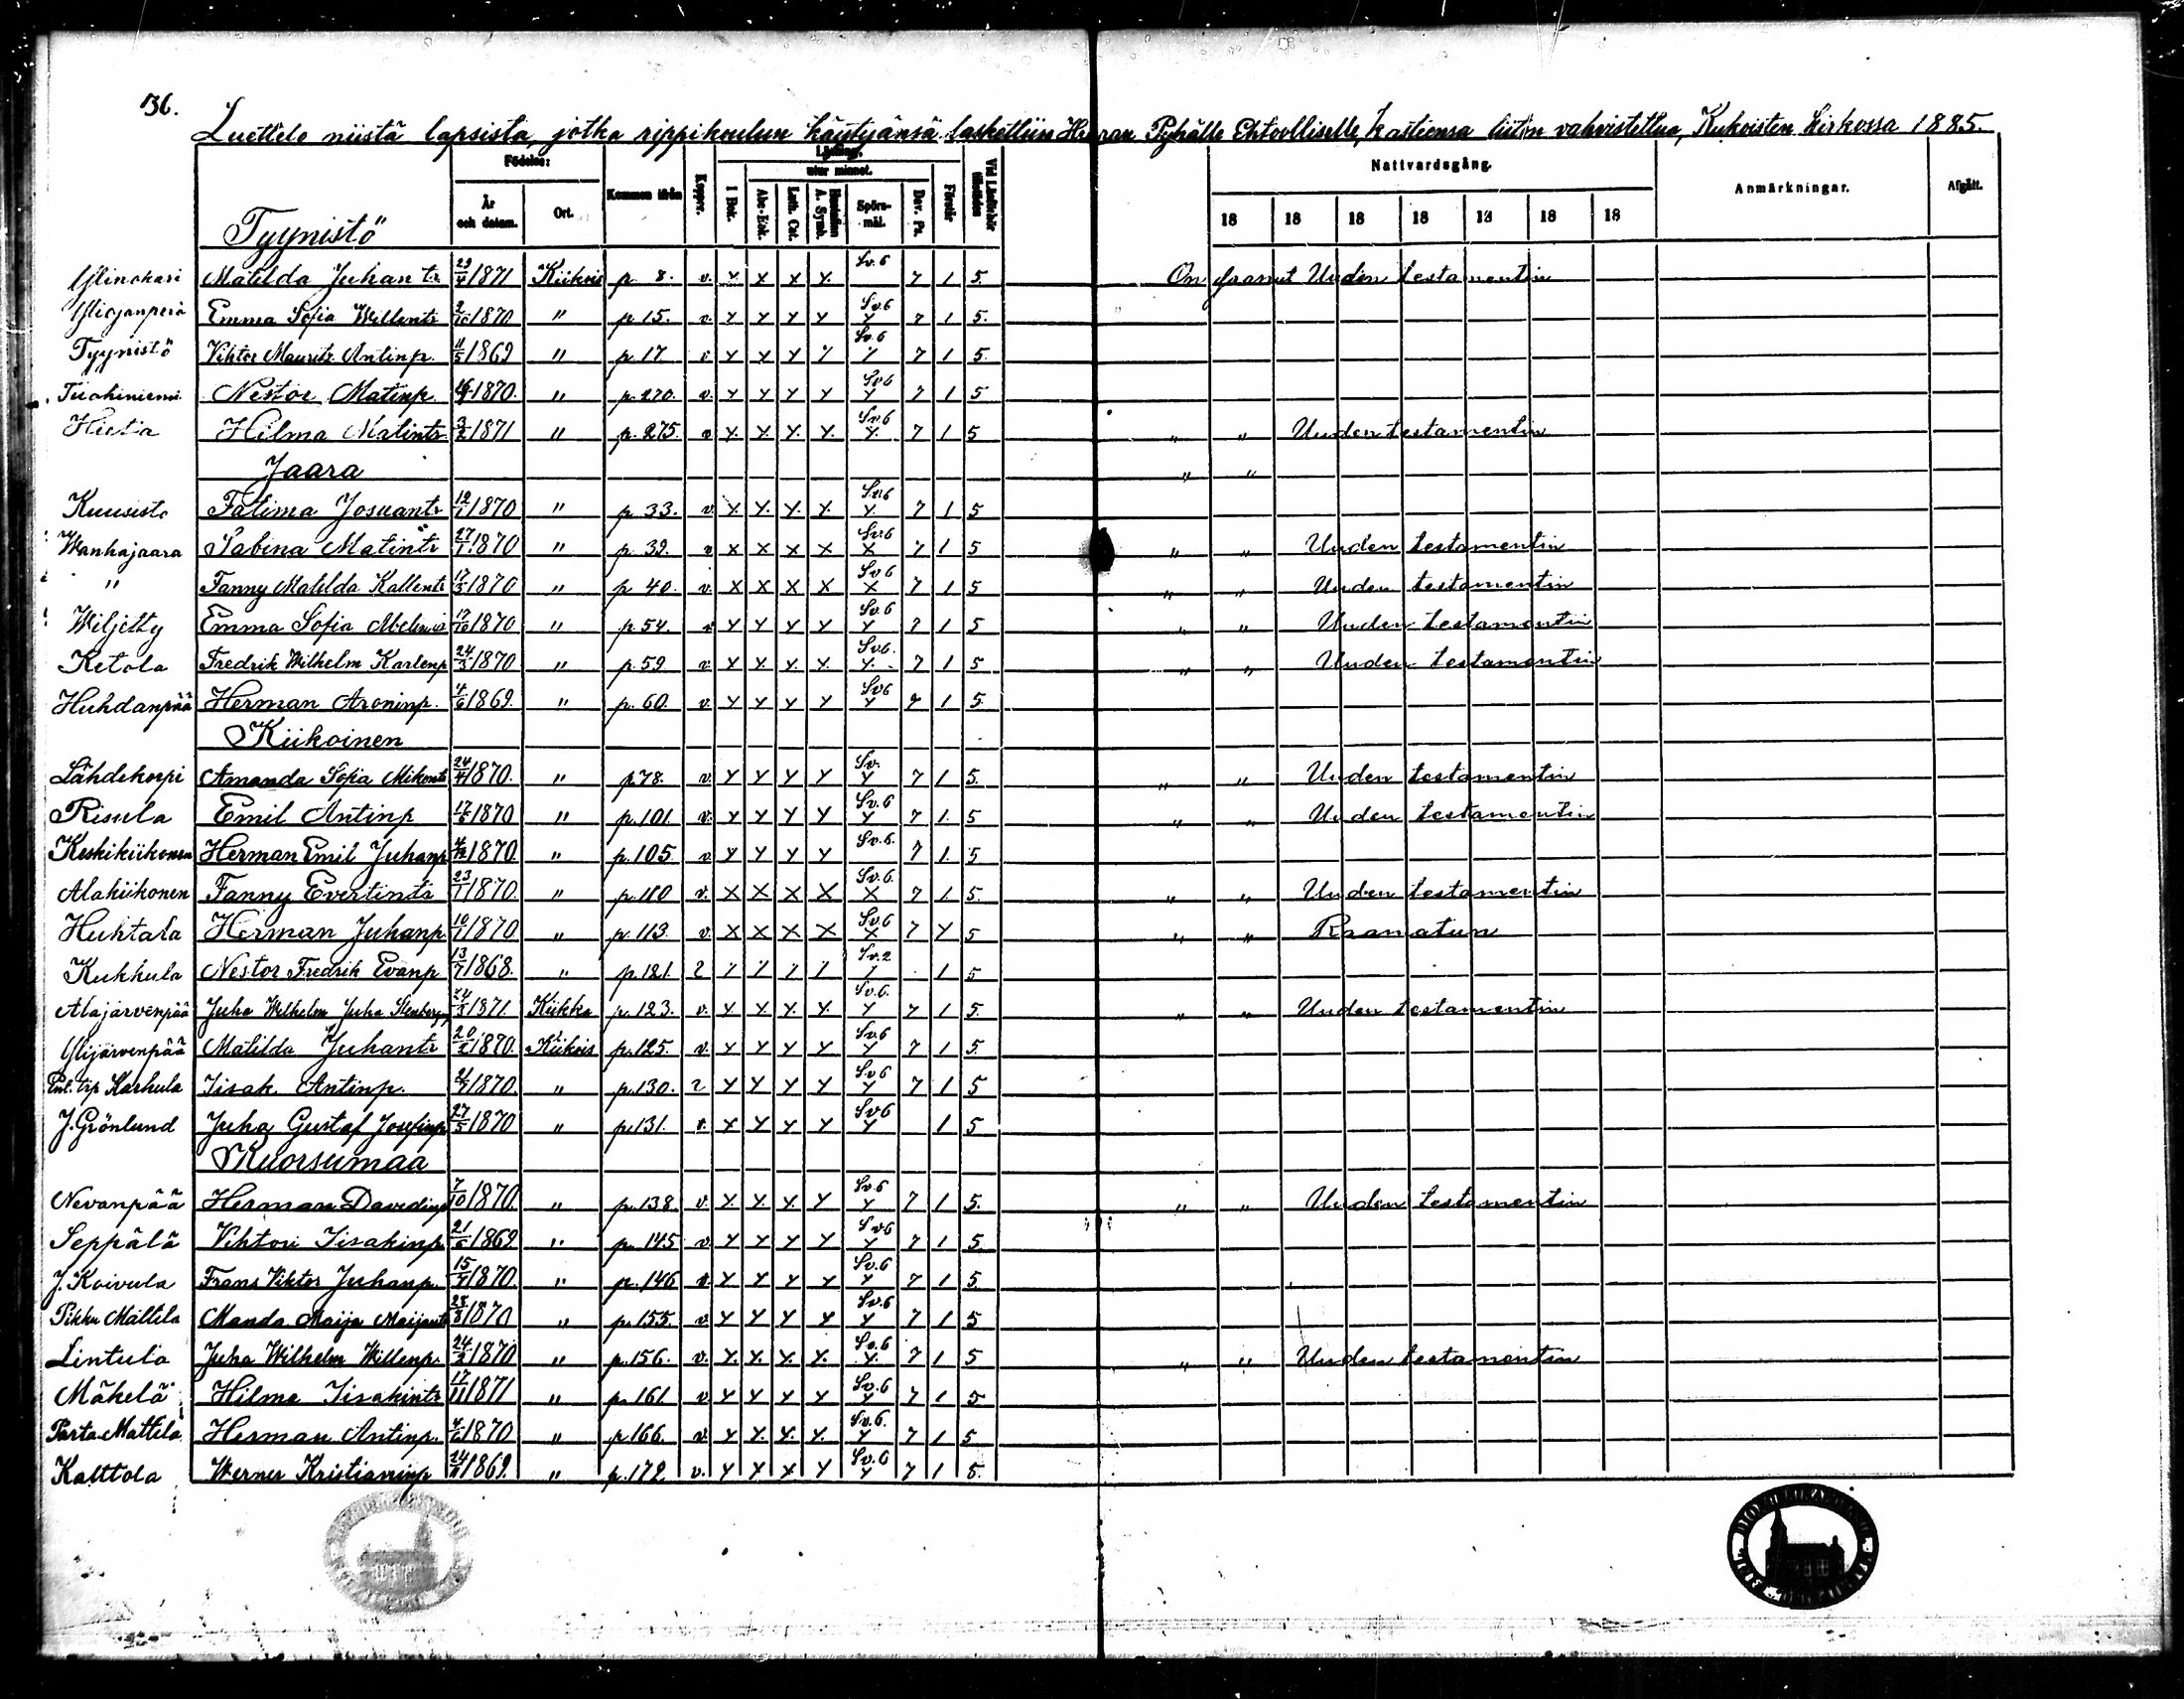 136.
Luettelo niistä lapsista, jotka rippikoulun käytyänsä laskettiin Herran Pyhälle Ehtoolliselle, kasteensa liiton vahvistettua, Kiikoisten kirkossa 1885.
Födelse: Läsning. Nattvardsgång.
År och datum. Ort. Kommen ifrån Koppor. I Bok. utur minnet. Abc-Bok. Luth. Cat. Hustaflan A. Symb. Spörs-mål. Dav. Ps. Förstår Vid Läsförhör tillstädes 18 18 18 18 18 18 18 Anmärkningar. Afgått.
Tyynistö
Ylinokari Matilda Juhantr 1871 Kiikois p. 8. v. x x x x Sv. 6 7 1 5. On saanut Uuden testamentin
Yliojanperä Emma Sofia Willentr 1870 " p. 15. v. x x x x Sv. 6 x 7 1 5.
Tyynistö Vihtor Mauritz Antinp. 11/5 1869 " p. 17 v. x x x x Sv. 6 x 7 1 5.
Nestor Matinp. 1870. " p. 270. v. x x x x Sv 6 x 7 1 5
Hieta Hilma Matintr 3/2 1871 " p. 275. v x x x x Sv. 6 x 7 1 5 " " Uuden testamentin
Jaara " "
Kuusisto Fatima Josuantr 12/1 1870 " p. 33. v. x x x x Sv. 6 x 7 1 5
Wanhajaara Sabina Matintr 27/1 1870 " p. 39. v x x x x Sv. 6 x 7 1 5 " " Uuden testamentin
" Fanny Matilda Kallentr 17/3 1870 " p. 40. v. x x x x Sv 6 x 7 1 5 " " Uuden testamentin
Wiljetty Emma Sofia 1870 " p. 54. v x x x x Sv. 6 x 7 1 5 " " Uuden testamentin
Ketola Fredrik Wilhelm Karlenp 24/3 1870 " p. 59 v. x x x x Sv. 6. x 7 1 5 " " Uuden testamentin
Huhdanpää Herman Aroninp. 4/6 1869. " p. 60. v. x x x x Sv 6 x 7 1 5.
Kiikoinen
Lähdekorpi Amanda Sofia Mikontr 24/4 1870. " p. 78. v. x x x x Sv. x 7 1 5. " " Uuden testamentin
Risula Emil Antinp 1870 " p. 101. v. x x x x Sv. 6 x 7 1 5 " " Uuden testamentin
Keskikiikonen Herman Emil Juhanp 1870. " p. 105. v. x x x x Sv. 6. 7 1. 5
Alakiikonen Fanny Evertintr 23/1 1870. " p. 110 v. x x x x Sv. 6. x 7 1. 5. " " Uuden testamentin
Huhtala Herman Juhanp 10/1 1870 " p. 113. v. x x x x Sv. 6 x 7 x 5 " " Raamatun
Kukkula Nestor Fredrik Evanp 13/7 1868. " p. 121. 2 / / / / Sv. 2 / 1 5
Alajärvenpää Juha Wilhelm Juha 1871. Kiikka p. 123. v. x x x x Sv. 6. x 7 1 5. " " Uuden testamentin
Ylijärvenpää Matilda Juhantr 20/2 1870. Kiikois p. 125. v. x x x x Sv. 6 x 7 1 5.
Karhula Iisak Antinp. 1870. " p. 130. 2 x x x x Sv. 6 x 7 1 5
J. Grönlund Juha Gustaf Josefinp 27/5 1870 " p. 131. v. x x x x Sv 6 x 1 5
Kuorsumaa
Nevanpää Herman Davidinp 7/10 1870. " p. 138. v. x x x x Sv. 6 x 7 1 5. " " Uuden testamentin
Seppälä Vihtori Iisakinp 21/6 1869 " p. 145 v. x x x x Sv 6 x 7 1 5.
J. Koivula Frans Viktor Juhanp. 15/7 1870. " p. 146 v. x x x x Sv. 6 x 7 1 5.
Pikku Mattila Manda Maija Maijantr 1870 " p. 155. v. x x x x Sv. 6 x 7 1 5
Lintula Juha Wilhelm Willenp. 24/2 1870 " p. 156. v. x x x x Sv. 6 x 7 1 5 " " Uuden testamentin
Mäkelä Hilma Iisakintr 17/11 1871 " p. 161. v x x x x Sv. 6 x 7 1 5.
Parta-Mattila Herman Antinp. 4/6 1870 " p. 166. v. x x x x Sv. 6. x 7 1 5
Kalttola Werner Kristianinp 1869. " p. 172. v. x x x x Sv. 6 x 7 1 5.